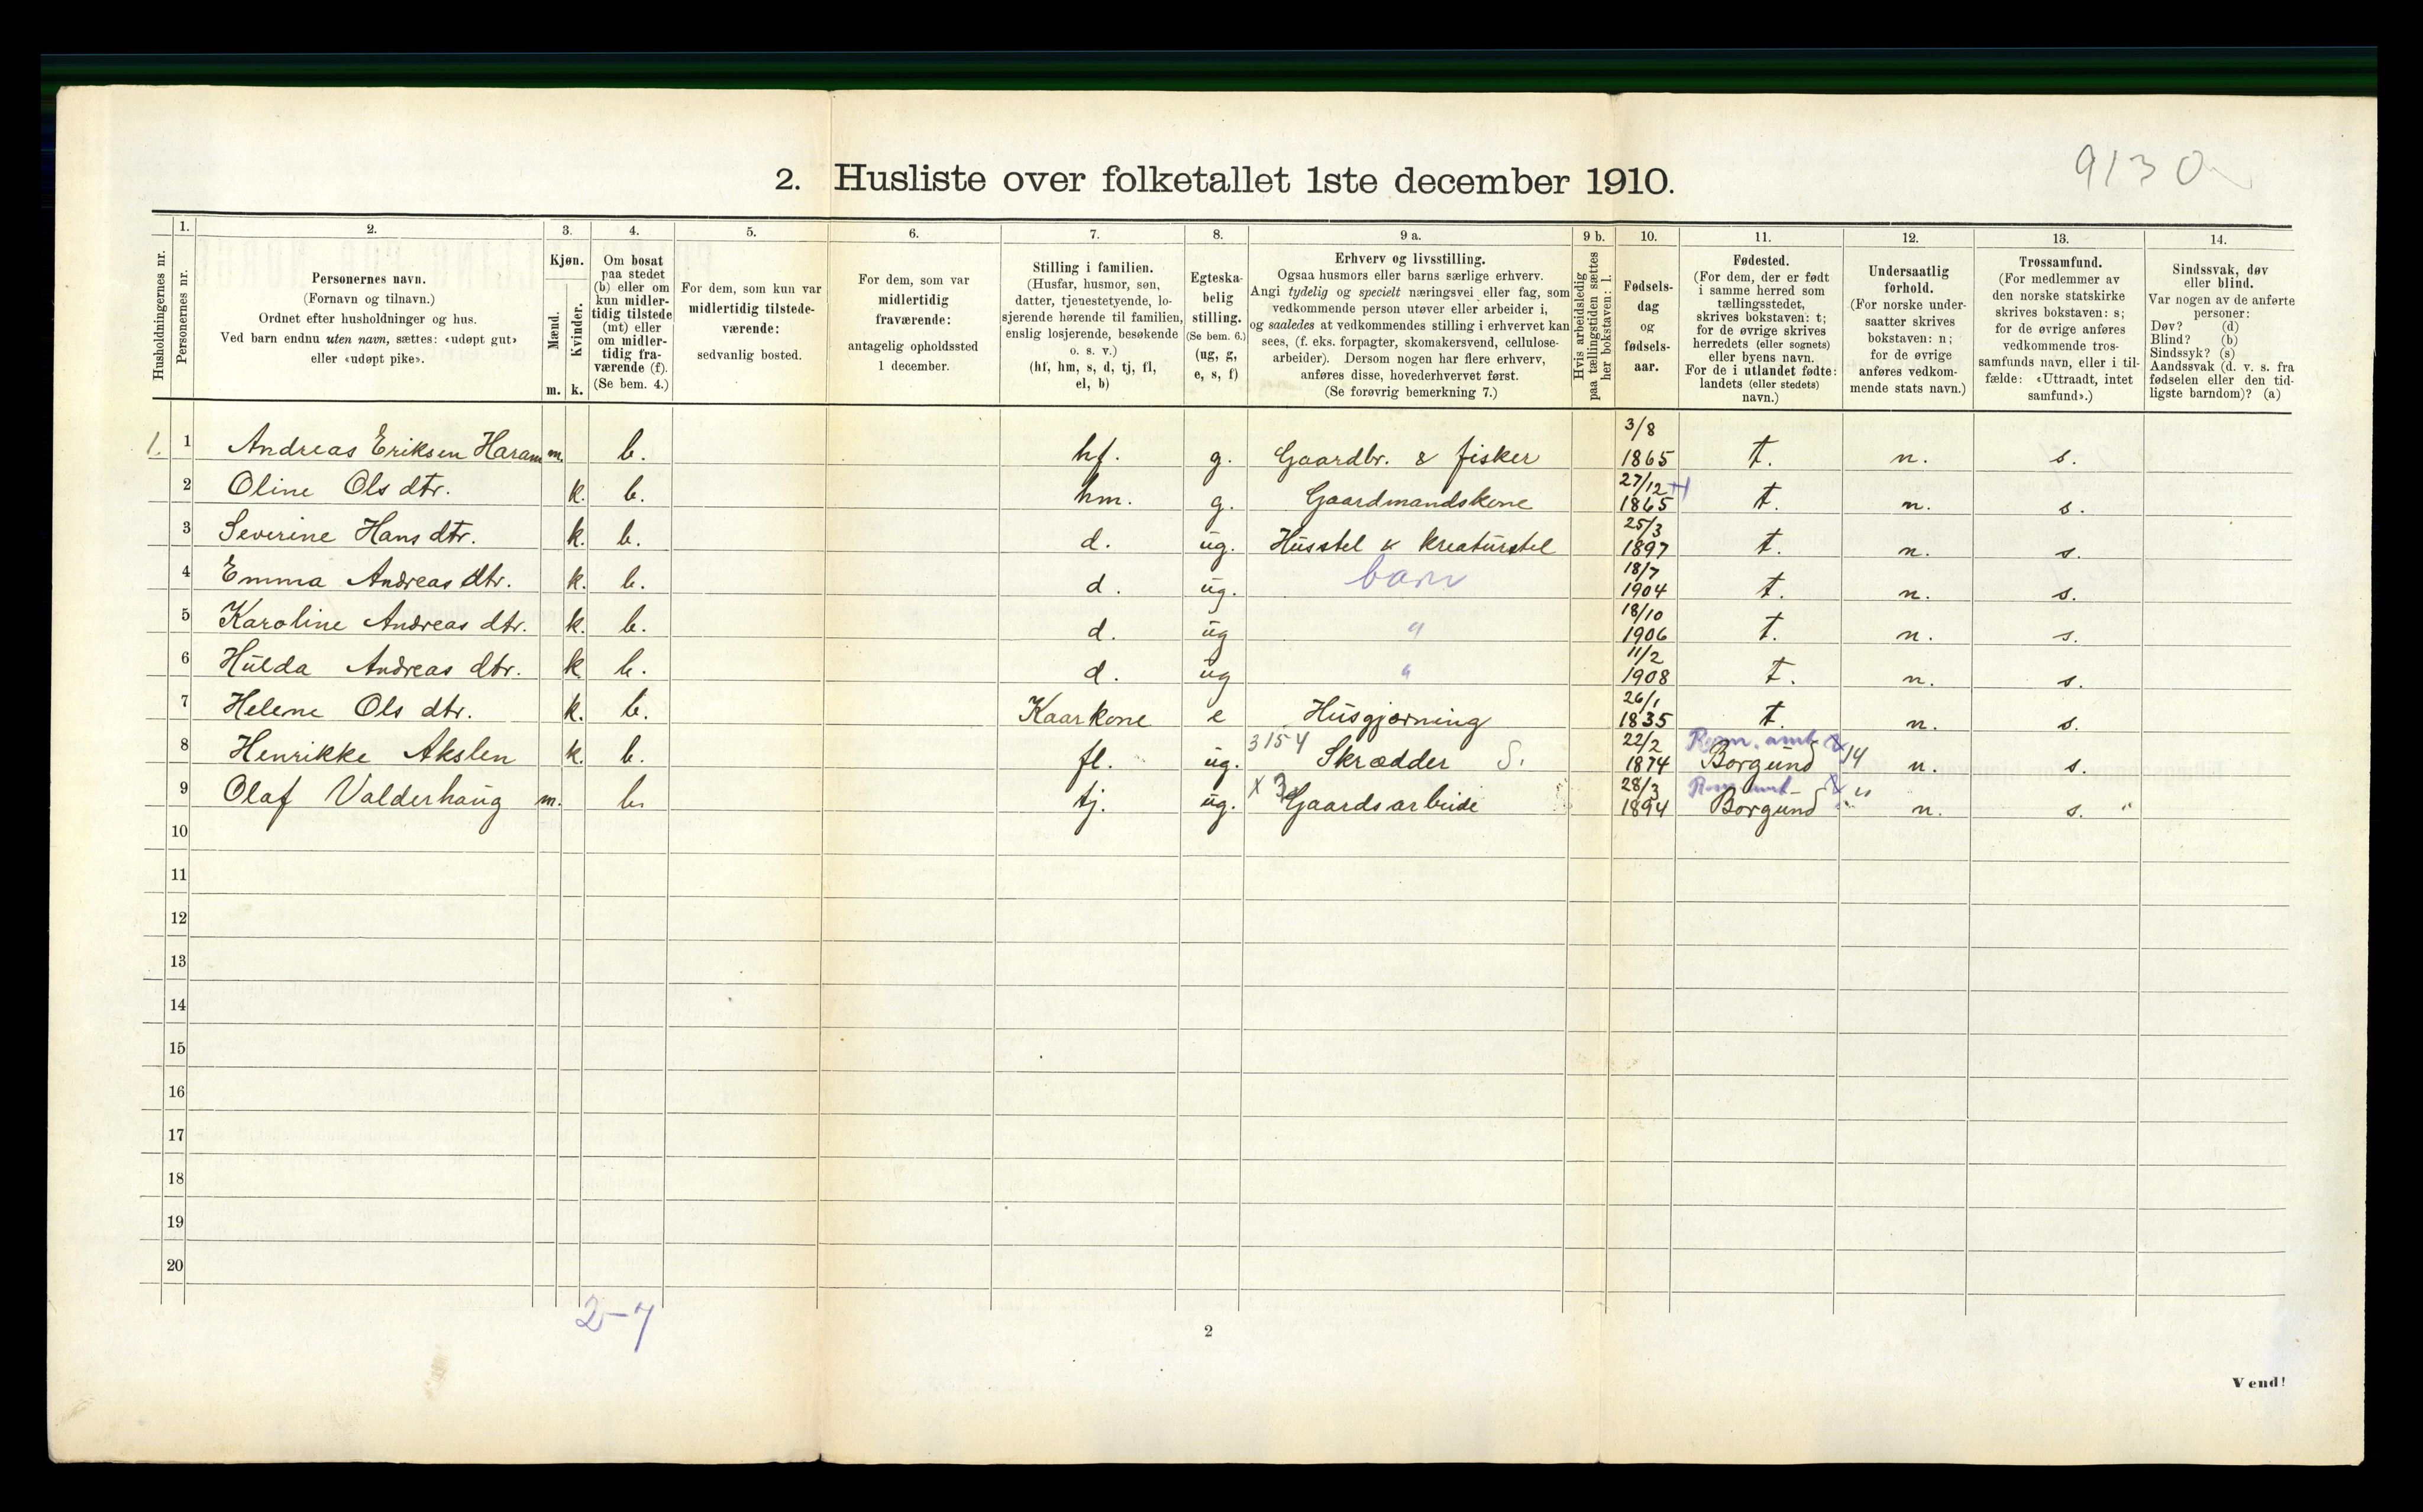 9130
2. Husliste over folketallet 1ste december 1910.
Husholdningernes nr.
1.
Personernes nr.
2.
Personernes navn.
(Fornavn og tilnavn.)
Ordnet efter husholdninger og hus.
Ved barn endnu uten navn, sættes: «udøpt gut»
eller «udøpt pike».
3.
Kjøn.
Mænd.
Kvinder.
m. k.
4.
Om bosat
paa stedet
(b) eller om
kun midler-
tidig tilstede
(mt) eller
om midler-
tidig fra-
værende (f).
(Se bem. 4.)
5.
For dem, som kun var
midlertidig tilstede-
værende:
sedvanlig bosted.
6.
For dem, som var
midlertidig
fraværende:
antagelig opholdssted
1 december.
7.
Stilling i familien.
(Husfar, husmor, søn,
datter, tjenestetyende, lo-
sjerende hørende til familien,
enslig losjerende, besøkende
o. s. v.)
(hf, hm, s, d, tj, fl,
el, b)
8.
Egteska-
belig
stilling.
(Se bem. 6.)
(ug, g,
e, s, f)
9 a.
Erhverv og livsstilling.
Ogsaa husmors eller barns særlige erhverv.
Angi tydelig og specielt næringsvei eller fag, som
vedkommende person utøver eller arbeider i,
og saaledes at vedkommendes stilling i erhvervet kan
sees, (f. eks. forpagter, skomakersvend, cellulose-
arbeider). Dersom nogen har flere erhverv,
anføres disse, hovederhvervet først.
(Se forøvrig bemerkning 7.)
9 b.
Hvis arbeidsledig
paa tællingstiden sættes
her bokstaven: l.
10.
Fødsels-
dag
og
fødsels-
aar.
11.
Fødested.
(For dem, der er født
i samme herred som
tællingsstedet,
skrives bokstaven: t;
for de øvrige skrives
herredets (eller sognets)
eller byens navn.
For de i utlandet fødte:
landets (eller stedets)
navn.)
12.
Undersaatlig
forhold.
(For norske under-
saatter skrives
bokstaven: n;
for de øvrige
anføres vedkom-
mende stats navn.)
13.
Trossamfund.
(For medlemmer av
den norske statskirke
skrives bokstaven: s;
for de øvrige anføres
vedkommende tros-
samfunds navn, eller i til-
fælde: «Uttraadt, intet
samfund».)
14.
Sindssvak, døv
eller blind.
Var nogen av de anførte
personer:
Døv? (d)
Blind? (b)
Sindssyk? (s)
Aandssvak (d. v. s. fra
fødselen eller den tid-
ligste barndom)? (a)
1. 1 Andreas Eriksen Haram m. b. hf. g. Gaardbr. & fisker 3/8 1865 t. n. s.
2 Oline Ols dtr. k. b. hm. g. Gaardmandskone 27/12 1865 t. n. s.
3 Severine Hans dtr. k. b. d. ug. Husstel & kreaturstel 25/3 1897 t. n. s.
4 Emma Andreas dtr. k. b. d. ug. barn 18/7 1904 t. n. s.
5 Karoline Andreas dtr. k. b. d. ug " 18/10 1906 t. n. s.
6 Hulda Andreas dtr. k. b. d. ug " 11/2 1908 t. n. s.
7 Helene Ols dtr. k. b. Kaarkone e Husgjørning 26/1 1835 t. n. s.
8 Henrikke Akslen k. b. fl. ug. 3154 Skrædder S. 22/2 1874 Borgund 14 n. s.
9 Olaf Valderhaug m. b. tj. ug. x 3 Gaardsarbeide 28/3 1894 Borgund " n. s. "
10
11
12
13
14
15
16
17
18
19
20
2-7
2
Vend!